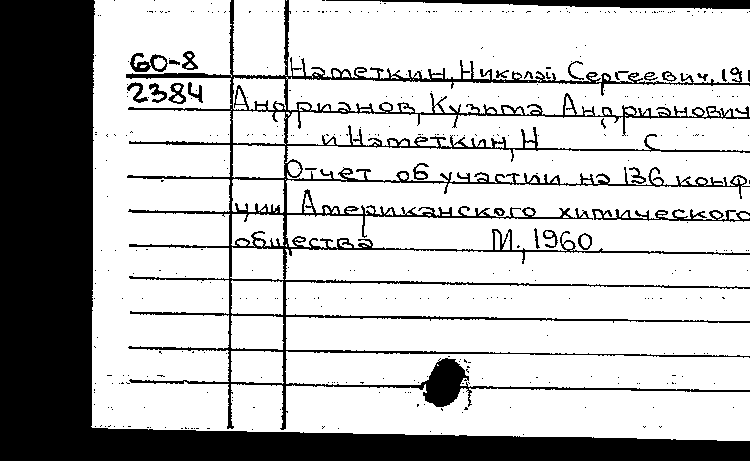 60-8 Наметкин, Николай Сергеевич, 191
2384 Андрианов, Кузьма Андрианович
и Наметкин, Н С
Отчет об участии на 136 конфе
ции Американского химического
общества М., 1960.